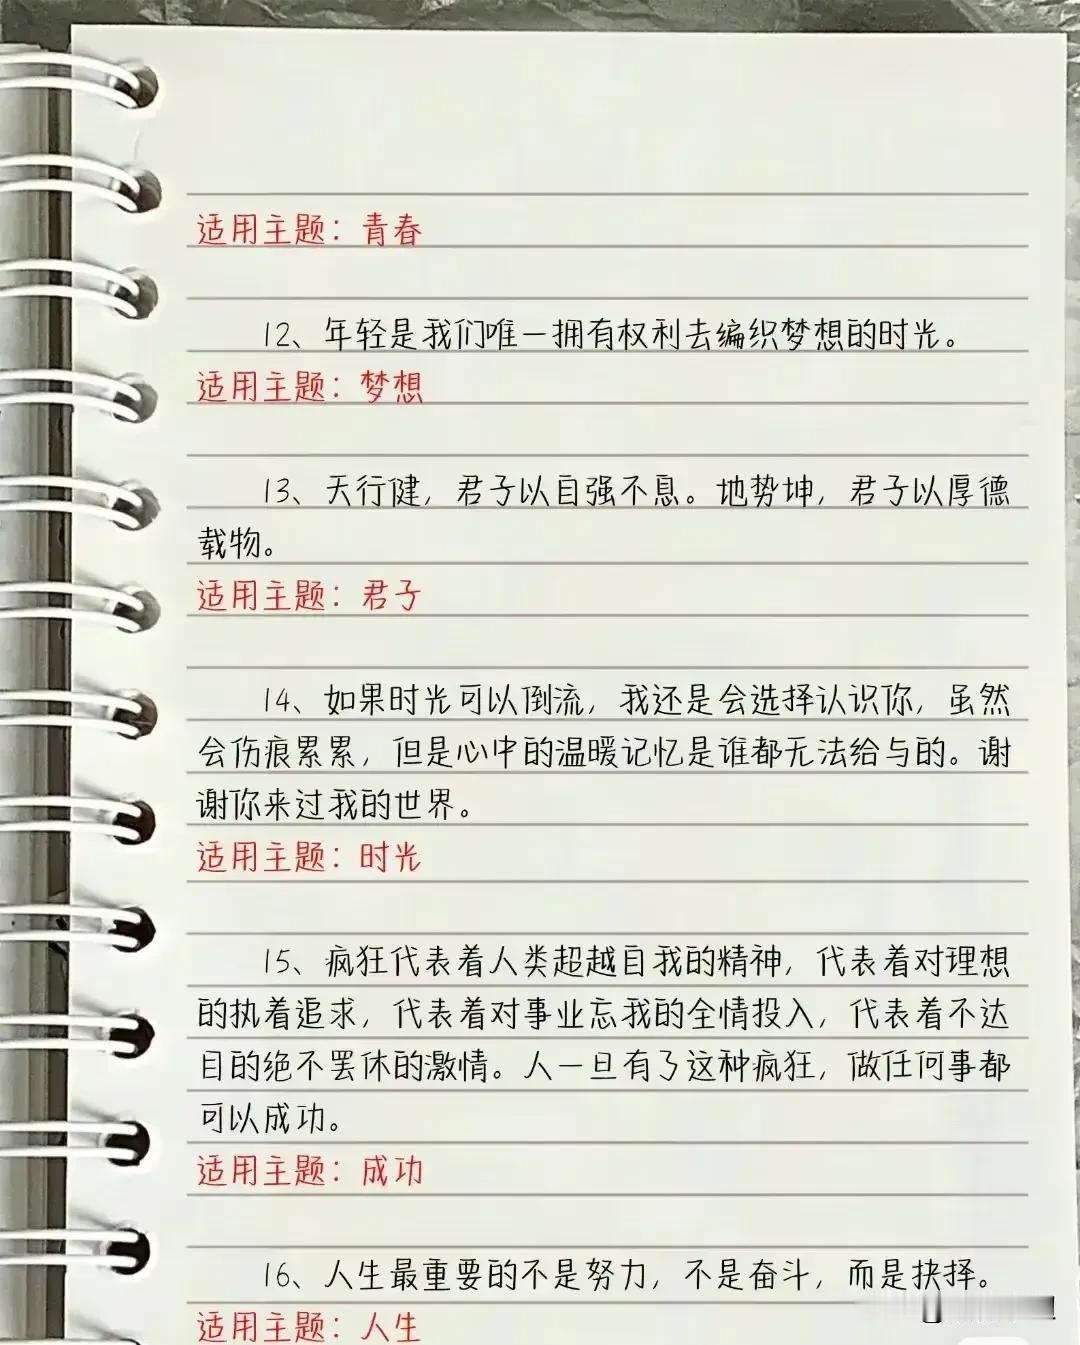 适用主题：青春
12、年轻是我们唯一拥有权利去编织梦想的时光。
适用主题：梦想
13、天行健，君子以自强不息。地势坤，君子以厚德
载物。
适用主题：君子
14、如果时光可以倒流，我还是会选择认识你，虽然
会伤痕累累，但是心中的温暖记忆是谁都无法给与的。谢
谢你来过我的世界。
适用主题：时光
15、疯狂代表着人类超越自我的精神，代表着对理想
的执着追求，代表着对事业忘我的全情投入，代表着不达
目的绝不罢休的激情。人一旦有了这种疯狂，做任何事都
可以成功。
适用主题：成功
16、人生最重要的不是努力，不是奋斗，而是抉择。
适用主题：人生